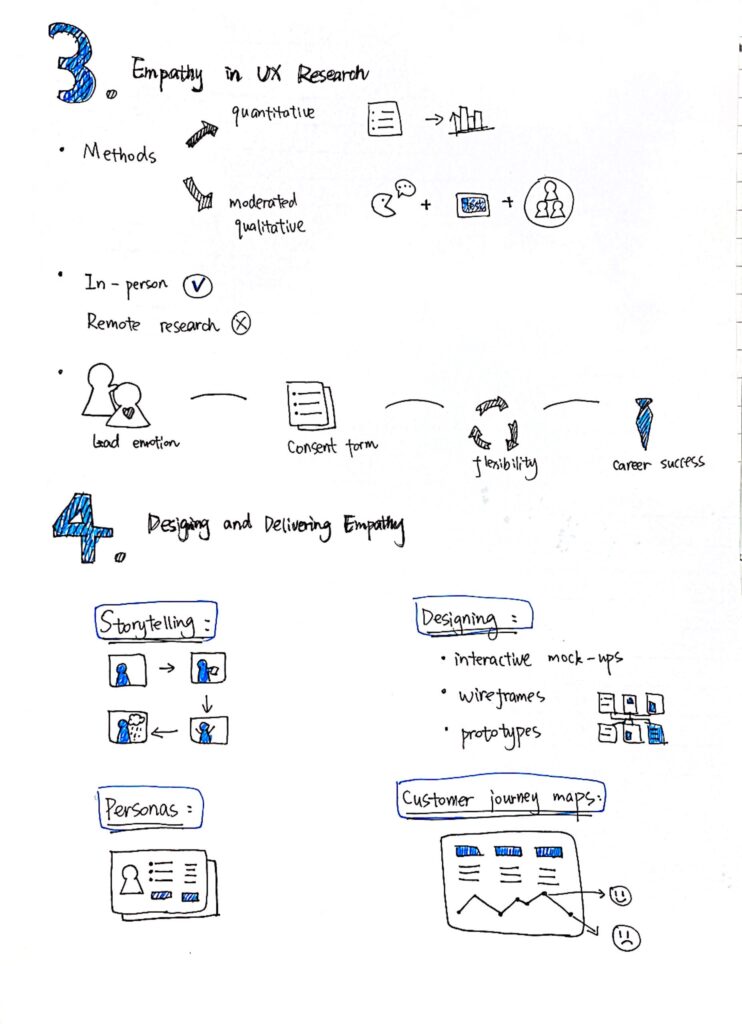 3.
Empathy in UX Research
quantitative
• Methods
moderated
qualitative
• In-person
Remote research
•
Lead emotion
Consent form
flexibility
career success
4.
Desiging and Delivering Empathy
Storytelling:
Designing:
• interactive mock-ups
• wireframes
• prototypes
Personas:
Customer journey maps: